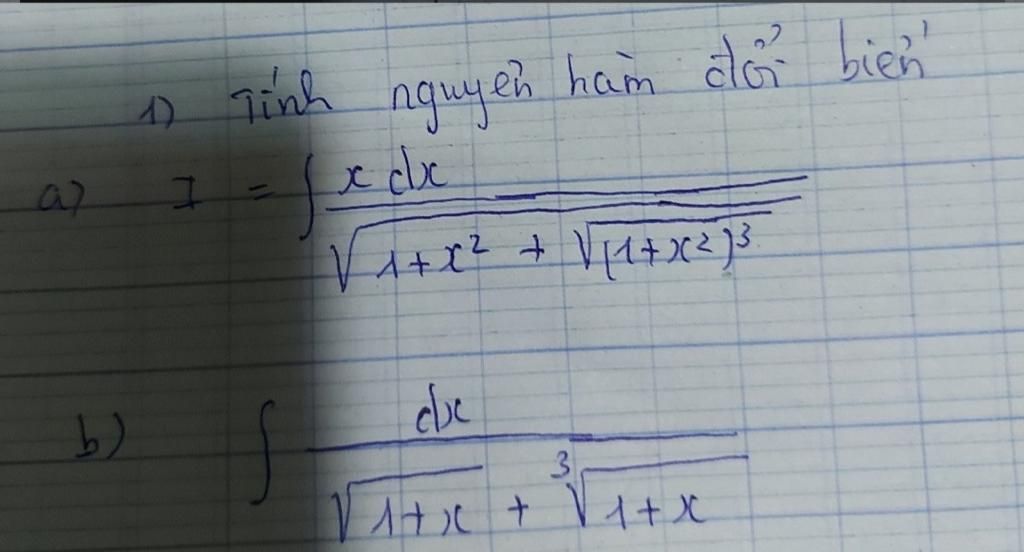 1) Tính nguyên hàm đổi biến
a) I = ∫ x dx / √(1+x² + √(1+x²)³)
b) ∫ dx / (√(1+x) + ³√(1+x))